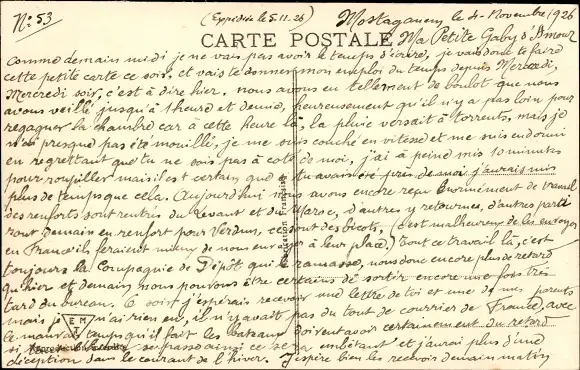 N° 53 (Expédiée le 5.11.26) Mostaganem le 4 Novembre 1926
CARTE POSTALE Ma Petite Gaby d'Amour
Comme demain midi je ne vais pas avoir le temps d'écrire, je vais donc te faire
cette petite carte ce soir, et vais te donner mon emploi du temps depuis Mercredi,
Mercredi soir, c'est à dire hier, nous avons eu tellement de boulot que nous
avons veillé jusqu'à 1 heure et demie, heureusement qu'il n'y a pas loin pour
regagner la chambre car à cette heure là, la pluie versait à torrents, mais je
n'ai presque pas été mouillé, je me suis couché en vitesse et me suis endormi
en regrettant que tu ne sois pas à côté de moi, j'ai à peine mis 10 minutes
pour roupiller mais il est certain que si tu avais été près de moi j'aurais mis
plus de temps que cela. Aujourd'hui nous avons encore reçu énormément de travail
des renforts sont rentrés du Levant et du Maroc, d'autres y retournes, d'autres parti
ront demain en renfort pour Verdun, ce sont des bicots, (c'est malheureux de les envoyer
en France ils feraient mieux de nous envoyer à leur place.) Tout ce travail là, c'est
toujours la Compagnie de Dépôt qui le ramasse, nous donc encore plus de retard
qu'hier et demain nous pouvons être certains de sortir encore une fois très
tard du bureau. Ce soir j'espérais recevoir une lettre de toi et une de mes parents
mais je n'ai rien eu, il n'y avait pas du tout de courrier de France, avec
le mauvais temps qu'il fait les bateaux doivent avoir certainement du retard
si, se passe ainsi ce sera embêtant et j'aurai plus d'une
déception dans le courant de l'hiver. J'espère bien les recevoir demain matin
E M
T
Reproduction interdite
Fabrication Française